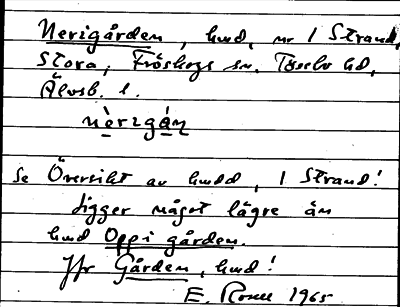 Nerigården, hmd, nr 1 Strand,
Stora, Fröskogs sn. Tössbo hd,
Älvsb. l.
nèrɩgán
Se Översikt av hmdd, 1 Strand!
Ligger något lägre än
hmd Oppi gården.
Jfr Gården, hmd!
E. 1965